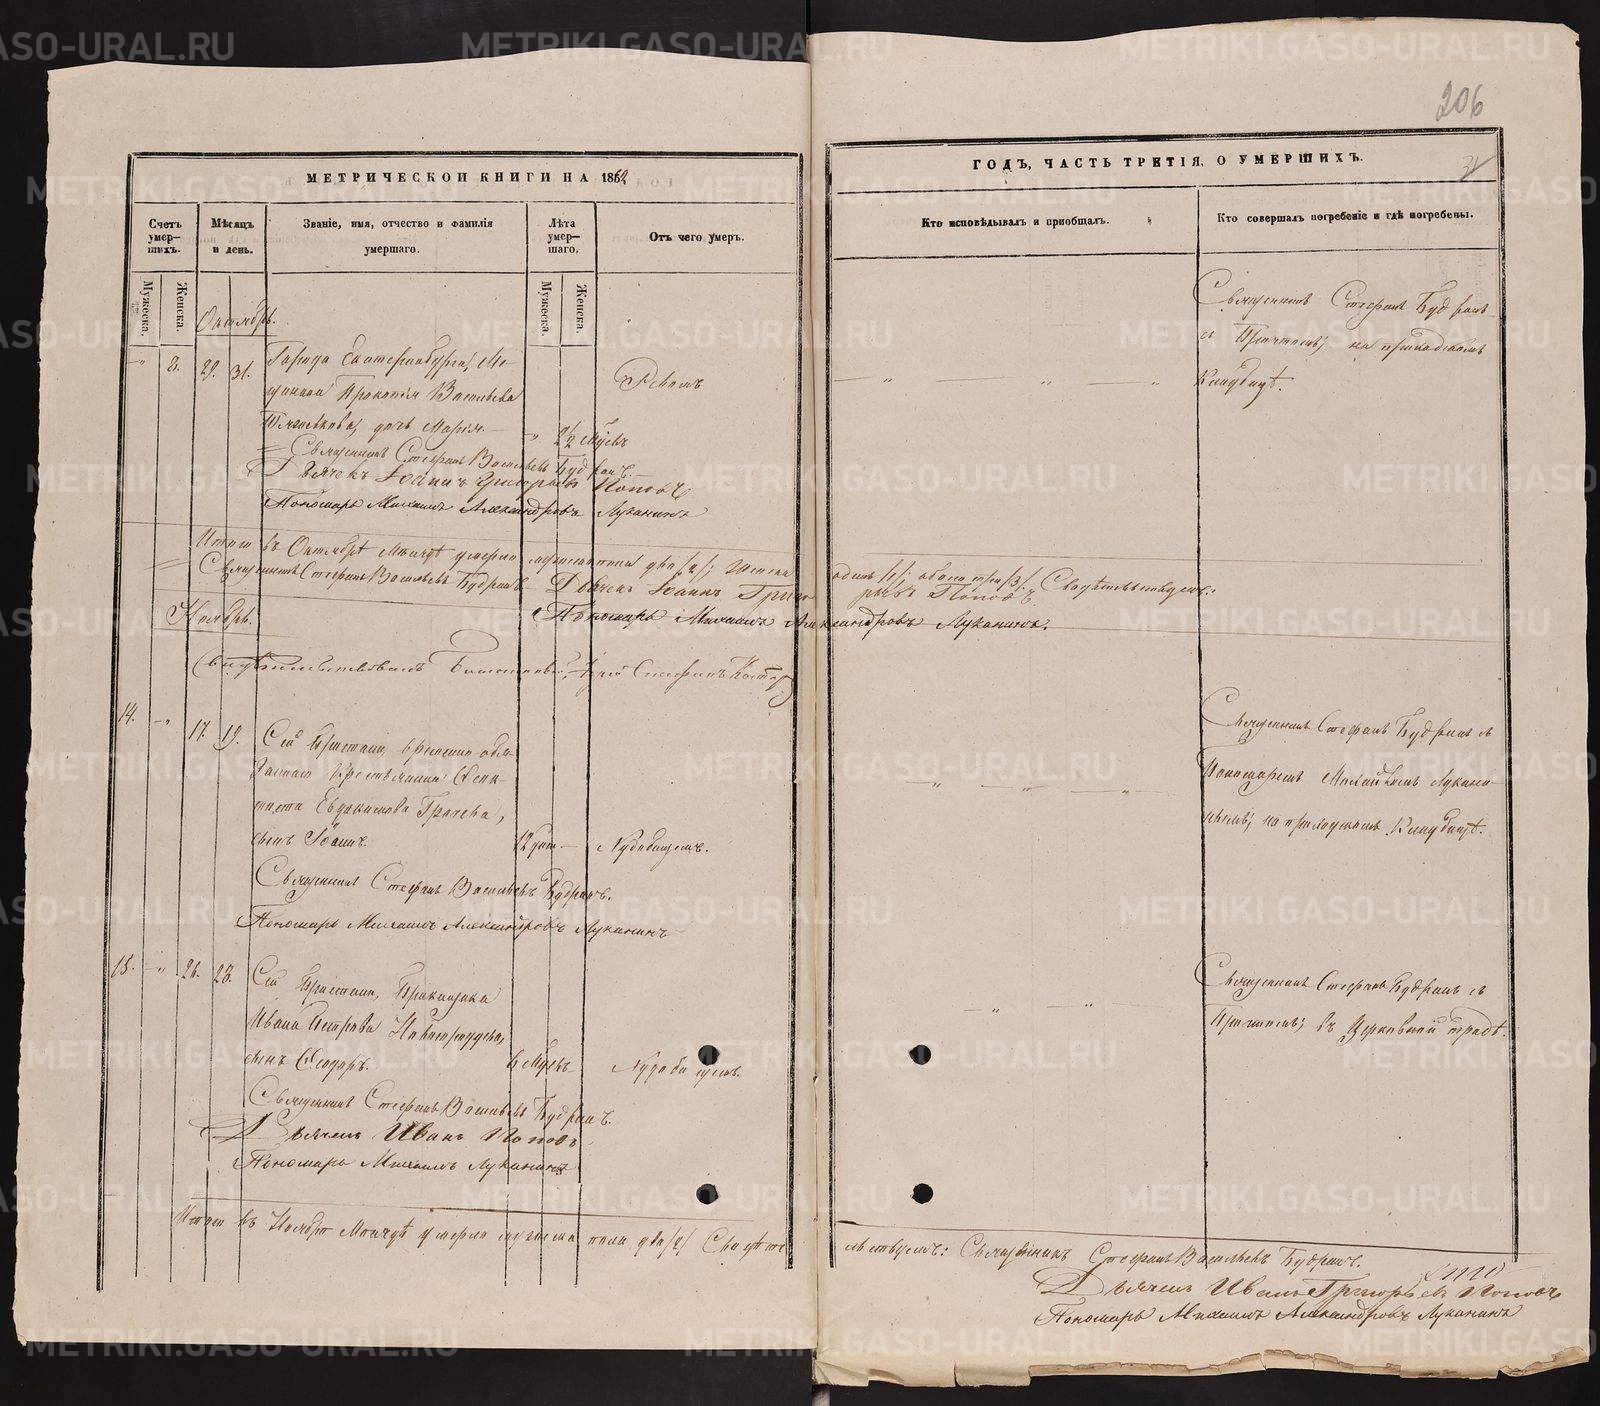 206
МЕТРИЧЕСКОЙ КНИГИ НА 1862
ГОДЪ, ЧАСТЬ ТРЕТІЯ, О УМЕРШИХЪ.
Счетъ умер-шихъ.
Мѣсяцъ и день.
Званіе, имя, отчество и фамилія умершаго.
Лѣта умер-шаго.
Отъ чего умеръ.
Кто исповѣдывалъ и пріобщалъ.
Кто совершалъ погребеніе и гдѣ погребены.
Мужеска.
Женска.
Мужеска.
Женска.
Октябрь.
8. 29. 31.
Города Екатеринбурга, Мѣ-
щанина Прокопія Васильева
дочь Марія.
2½ мѣсъ
Ревомъ
Священникъ Стефанъ Будринъ
съ Причтомъ; на приходскомъ
Кладбищѣ.
Священникъ Стефанъ Васильевъ Будринъ.
Дьячекъ Іоаннъ Григорьевъ Поповъ
Пономарь Михаилъ Александровъ Луканинъ
Итого въ Октябрѣ Мѣсяцѣ умерло мужеска пола два /2/; женска одинъ /1/; обоего три /3/. Свидѣтельствуемъ:
Священникъ Стефанъ Васильевъ Будринъ Дьячекъ Іоаннъ Григорьевъ Поповъ
Пономарь Михаилъ Александровъ Луканинъ.
Ноябрь.
Свидѣтельствовалъ
14. 17. 19.
Сей Пристани, временно обя-
заннаго Крестьянина
Евдокимова Грачева,
сынъ Іоаннъ.
12 дней
Священникъ Стефанъ Будринъ съ
Пономаремъ Михаиломъ Лукани-
нымъ; на приходскомъ Кладбищѣ.
Священникъ Стефанъ Васильевъ Будринъ.
Пономарь Михаилъ Александровъ Луканинъ
15. 26. 28.
Сей Пристани, Приказчика
Ивана Петрова
сынъ Ѳеодоръ.
6 Мѣсъ
Священникъ Стефанъ Будринъ съ
Причтомъ; въ Церковной оградѣ.
Священникъ Стефанъ Васильевъ Будринъ.
Дьячекъ Иванъ Поповъ
Пономарь Михаилъ Луканинъ
Итого въ Ноябрѣ Мѣсяцѣ умерло мужеска пола два /2/ Свидѣтельствуемъ: Священникъ Стефанъ Васильевъ Будринъ.
Дьячекъ Иванъ Григорьевъ Поповъ
Пономарь Михаилъ Александровъ Луканинъ
METRIKI.GASO-URAL.RU